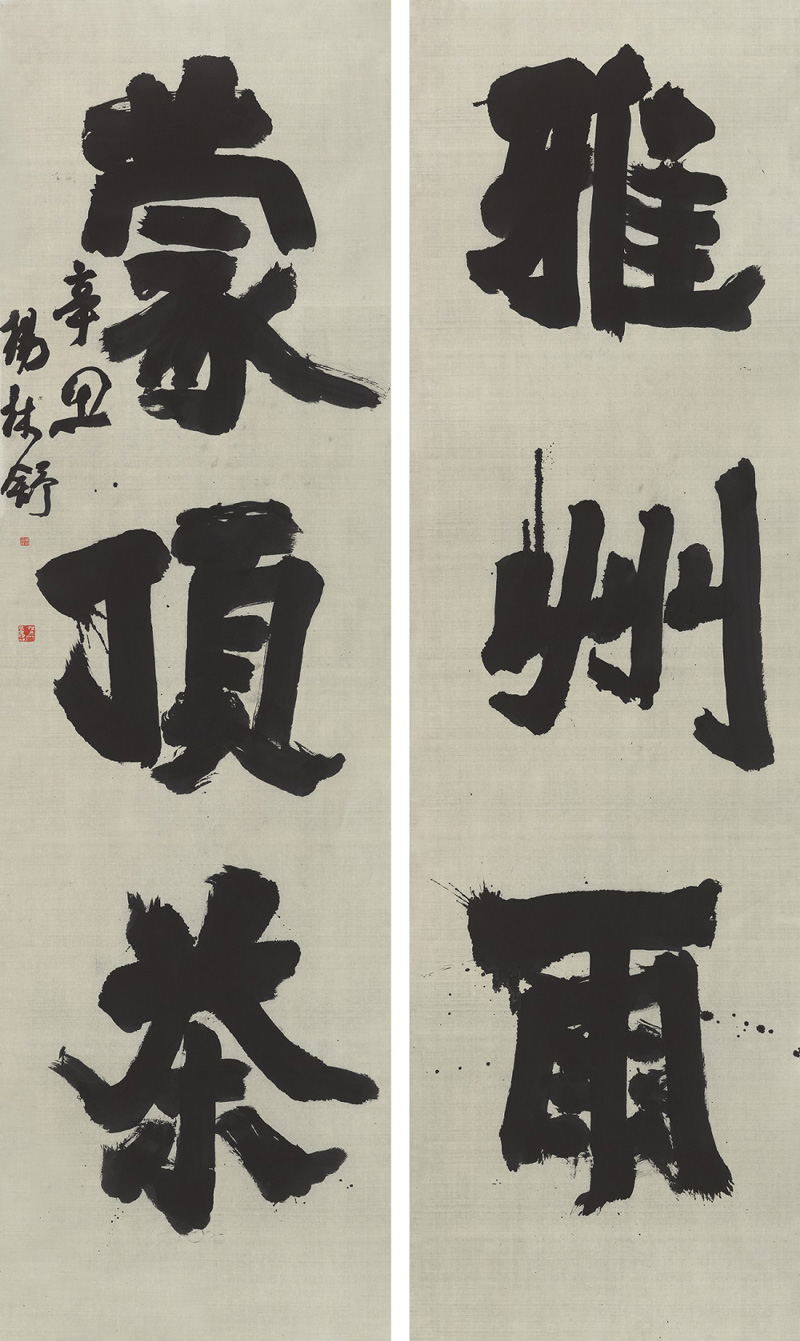 雅州雨
蒙頂茶
辛丑
楊林舒